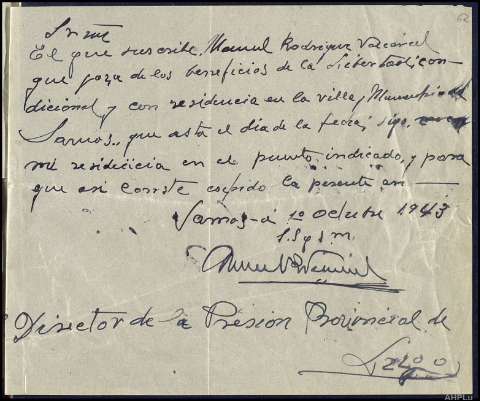 62
El que suscribe, Manuel Rodriguez Valcarcel
que goza de los beneficios de la libertad con-
dicional y con residencia en la villa, Municipio de
Samos.. que asta el dia de la fecra, sigo
mi residiicia en el punto indicado, y para
que asi conste espido la presente en —
Samos-a 1º octubre 1943
S. S. q. s. m.
Director de la Presion Provincial de
Lugo
AHPLu